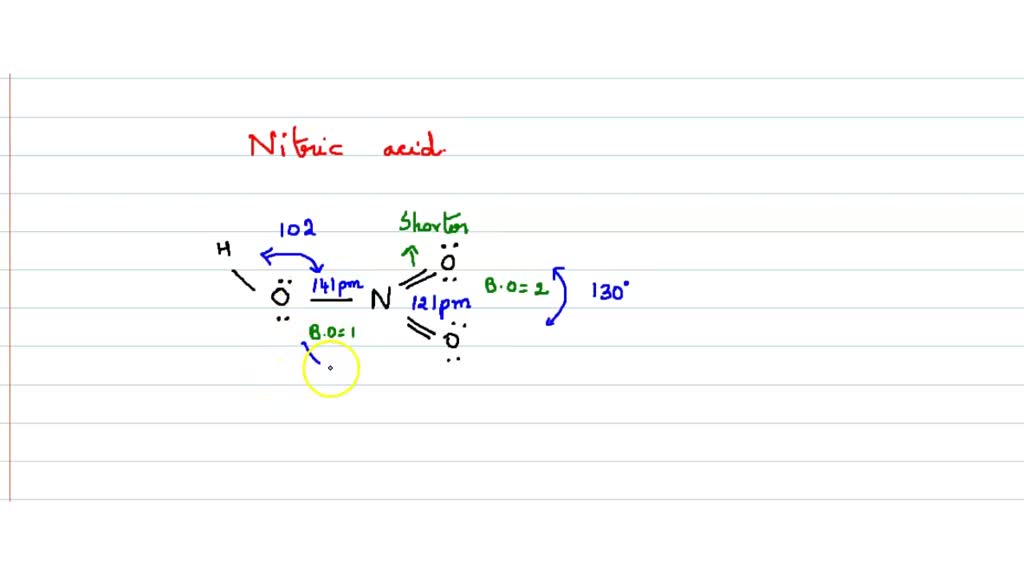 Nitric acid
102
Shorter
H
O
141pm
N
O
121pm
B.O=2
130°
B.O=1
O